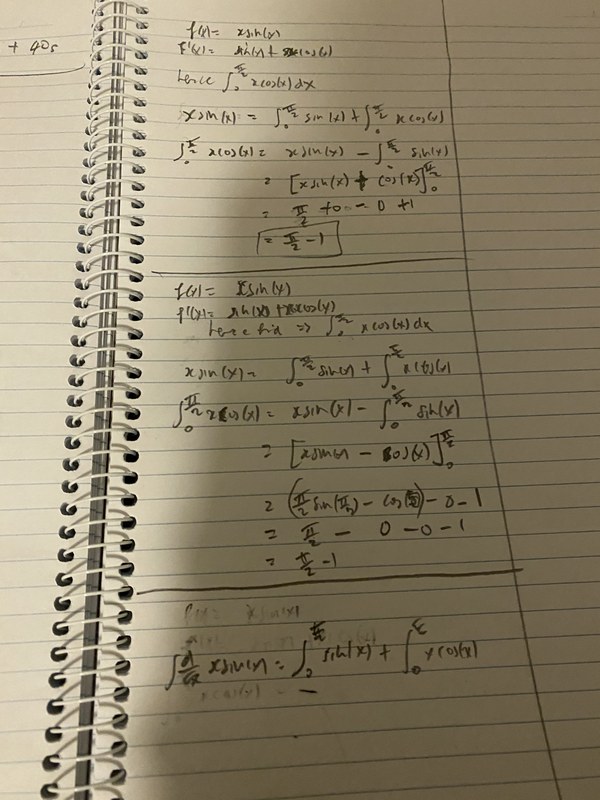 + 40s
f(x) = xsin(x)
f'(x) = sin(x) + xcos(x)
hence ∫₀^(π/2) xcos(x) dx
xsin(x) = ∫₀^(π/2) sin(x) + ∫₀^(π/2) xcos(x)
∫₀^(π/2) xcos(x) = xsin(x) - ∫₀^(π/2) sin(x)
= [xsin(x) + cos(x)]₀^(π/2)
= π/2 + 0 - 0 + 1
= π/2 - 1
f(x) = xsin(x)
f'(x) = sin(x) + xcos(x)
hence find => ∫₀^(π/2) xcos(x) dx
xsin(x) = ∫₀^(π/2) sin(x) + ∫₀^(π/2) xcos(x)
∫₀^(π/2) xcos(x) = xsin(x) - ∫₀^(π/2) sin(x)
= [xsin(x) - cos(x)]₀^(π/2)
= (π/2 sin(π/2) - cos(π/2)) - 0 - 1
= π/2 - 0 - 0 - 1
= π/2 - 1
f(x) = xsin(x)
∫ d/dx xsin(x) = ∫₀^(π/2) sin(x) + ∫₀^(π/2) xcos(x)
xcos(x) =